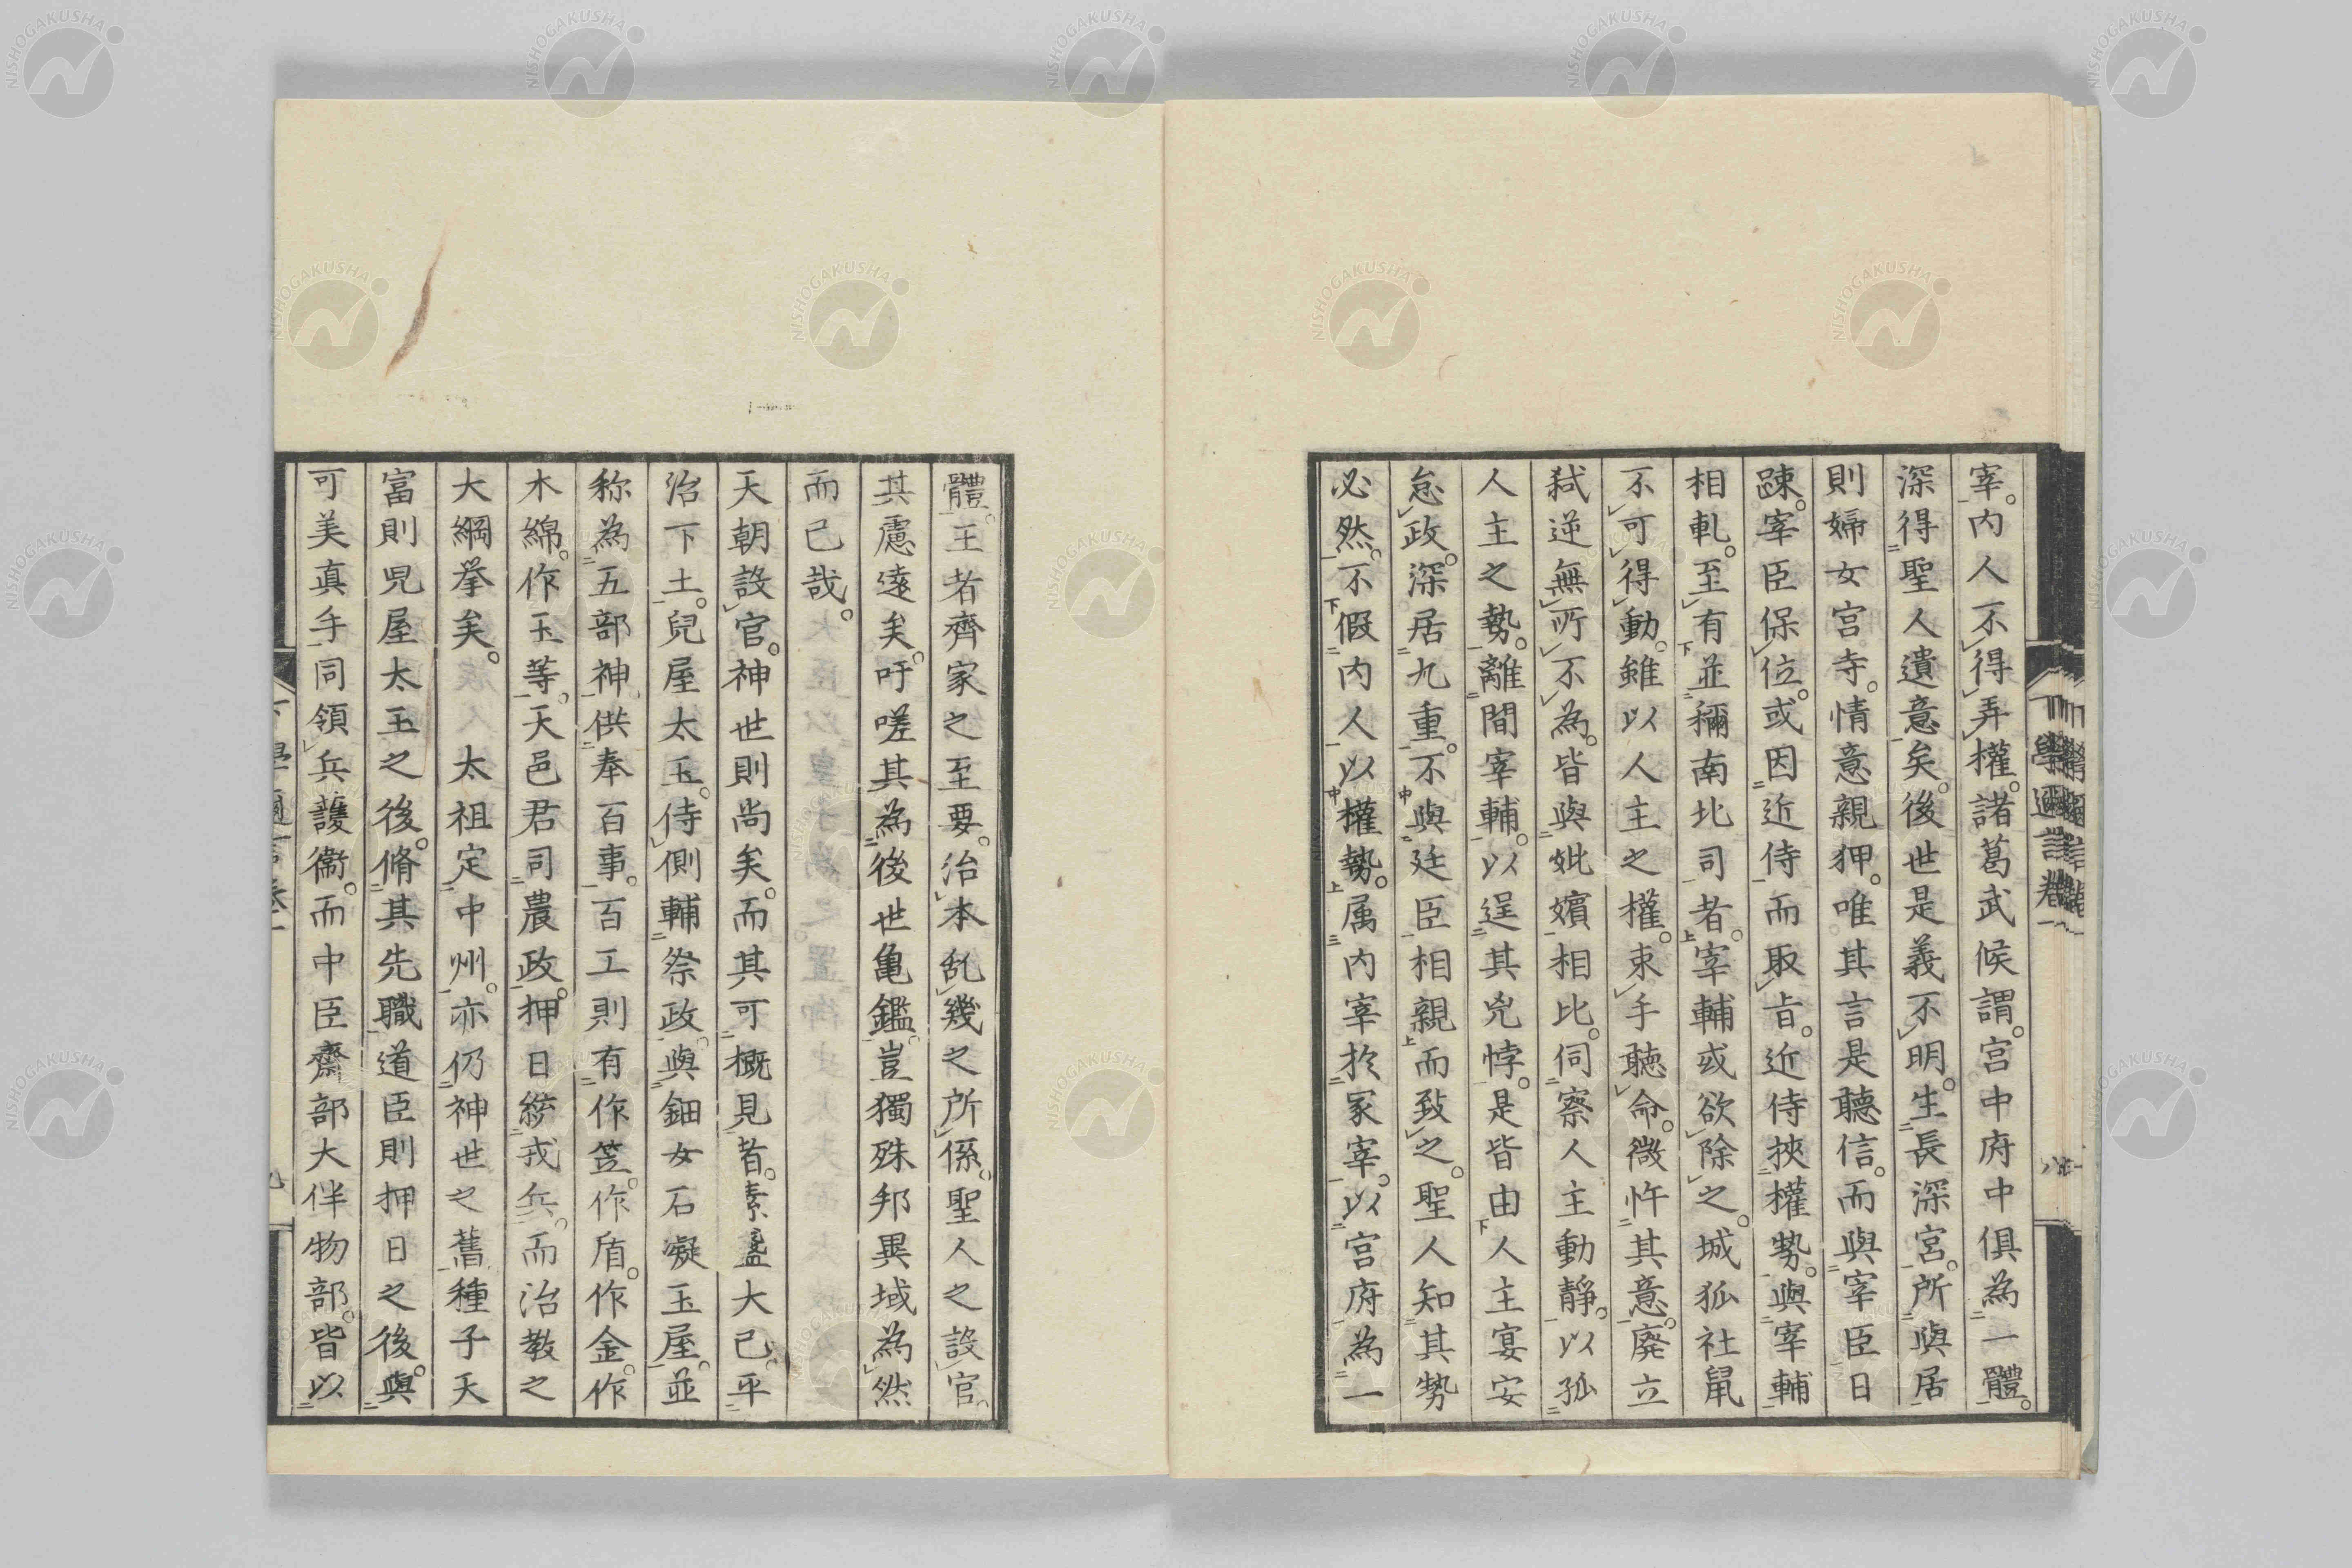 宰。内人不得弄權。諸葛武候謂。宮中府中俱為一體。
深得聖人遺意矣。後世是義不明。生長深宮。所與居
則婦女宮寺。情意親狎。唯其言是聽信。而與宰臣日
踈。宰臣保位。或因近侍而取旨。近侍挾權勢。與宰輔
相軋。至有並稱南北司者。宰輔或欲除之。城狐社鼠
不可得動。雖以人主之權。束手聽命。微忤其意。廢立
弑逆無所不為。皆與妣嬪相比。伺察人主動靜。以孤
人主之勢。離間宰輔。以逞其兇悖。是皆由人主宴安
怠政。深居九重。不與廷臣相親而致之。聖人知其勢
必然。不假内人以權勢。属内宰於冢宰。以宮府為一
體。王者齊家之至要。治本乱幾之所係。聖人之設官。
其慮遠矣。吁嗟其為後世亀鑑。豈獨殊邦異域為然
而已哉。
天朝設官。神世則尚矣。而其可概見者。素盞大己平
治下土。兒屋太玉。侍側輔祭政。與鈿女石凝玉屋。並
称為五部神。供奉百事。百工則有作笠。作盾。作金。作
木綿。作玉等。天邑君司農政。押日統戎兵。而治教之
大綱挙矣。太祖定中州。亦仍神世之舊。種子天
富則兒屋太玉之後。脩其先職。道臣則押日之後。與
可美真手同領兵護衞。而中臣齋部大伴物部。皆以
下學邇言卷一